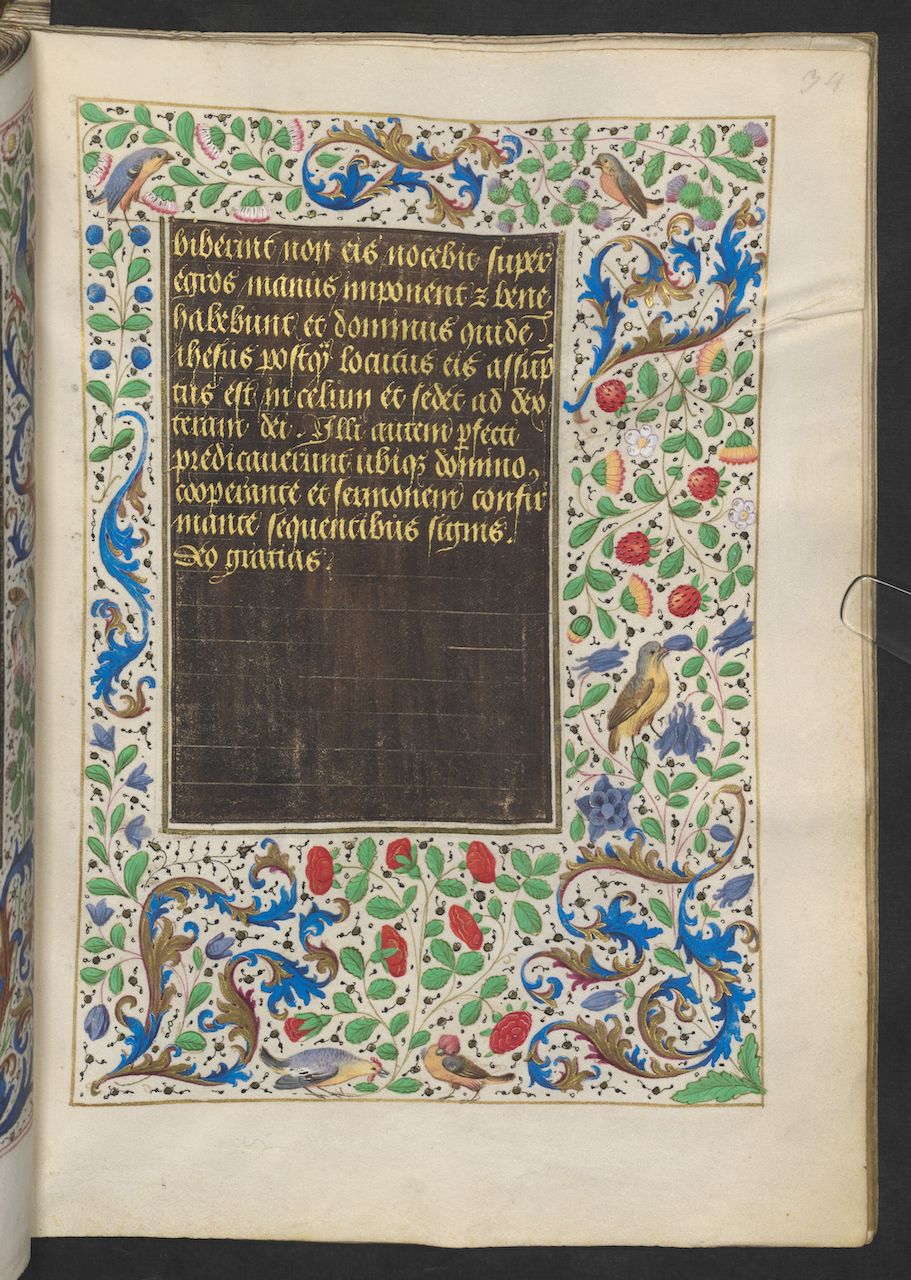 34
biberint non eis nocebit super
egros manus imponent ⁊ bene
habebunt et dominus quidē
ihesus postq̄ locutus eis assūp
tus est in celum et sedet ad dex
teram dei. Illi autem ꝓfecti
predicauerunt ubiqꝫ domino
cooperante et sermonem confir
mante sequentibus signis.
Deo gratias.